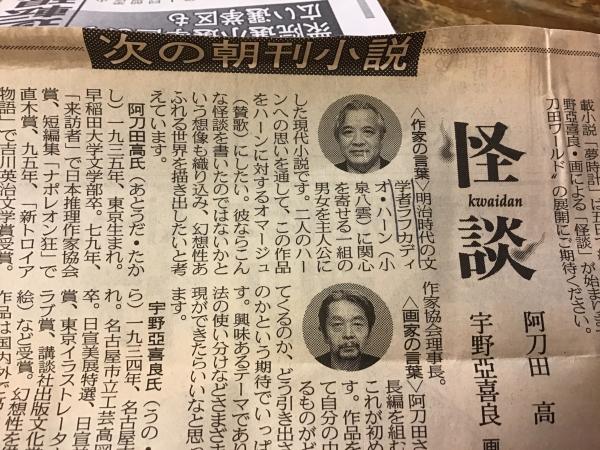 広い選挙区も
次の朝刊小説
載小説「夢時計」は五日で終
野亞喜良・画による「怪談」が始まります
刀田ワールド〟の展開にご期待ください。
怪談
kwaidan
阿刀田 高
宇野亞喜良 画
〈作家の言葉〉明治時代の文
学者ラフカディ
オ・ハーン（小
泉八雲）に関心
を寄せる一組の
男女を主人公に
した現代小説です。二人のハー
ンへの思いを通して、この作品
をハーンに対するオマージュ
（賛歌）にしたい。彼ならこん
な怪談を書いたのではないかと
いう想像も織り込み、幻想性あ
ふれる世界を描き出したいと考
えています。
阿刀田高氏（あとうだ・たか
し）一九三五年、東京生まれ。
早稲田大学文学部卒。七九年、
「来訪者」で日本推理作家協会
賞、短編集「ナポレオン狂」で
直木賞、九五年、「新トロイア
物語」で吉川英治文学賞受賞。
作家協会理事長。
〈画家の言葉〉阿刀田さ
長編を組む
これが初め
す。作品を
て自分の中
るものがど
てくるのか、どう引き出さ
のかという期待でいっぱ
す。興味あるテーマであり
法の使い分けなどさまざま
現ができたらいいなと思っ
ます。
宇野亞喜良氏（うの・
れ）一九三四年、名古屋
れ。名古屋市立工芸高図
卒。日宣美展特選、日宣
賞、東京イラストレータ
ラブ賞、講談社出版文化
絵）など受賞。幻想性を
作品は国内外で